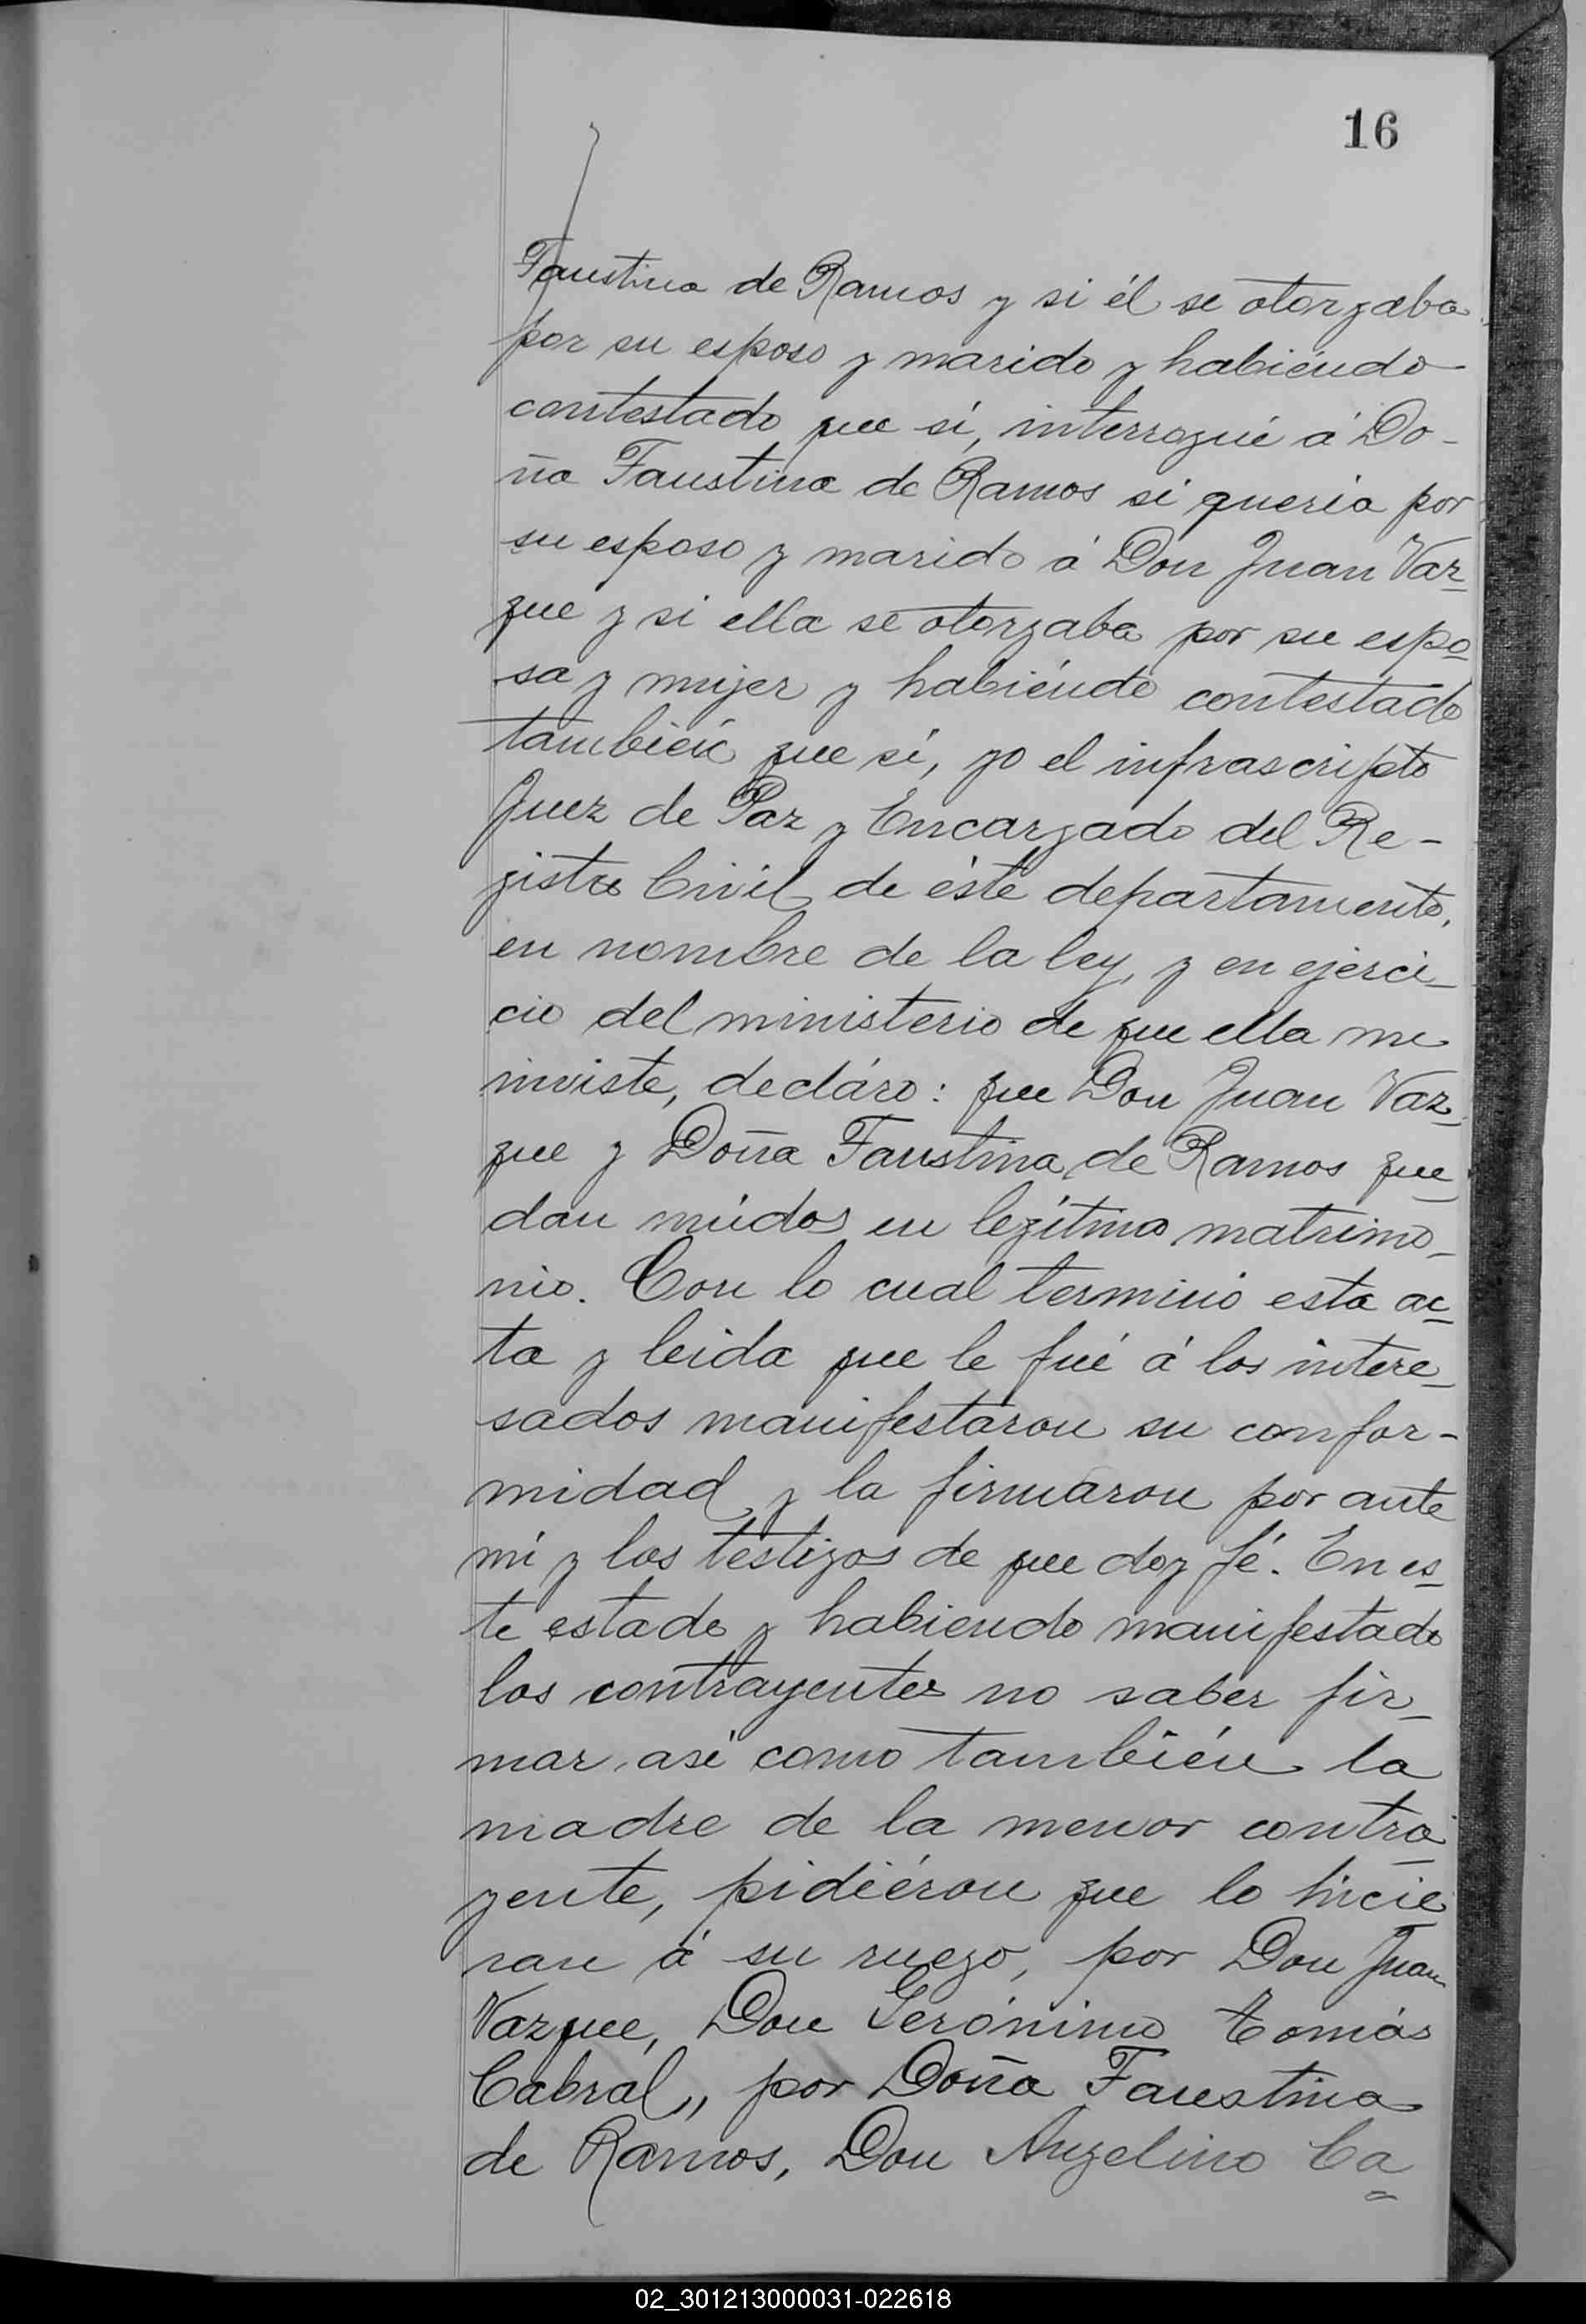 16
Faustina de Ramos y si él se otorgaba
por su esposo y marido y habiéndo
contestado que sí, interrogué á Do-
ña Faustina de Ramos si queria por
su esposo y marido á Don Juan Vaz
que y si ella se otorgaba por su espo
sa y mujer y habiéndo contestado
también que sí, yo el infrascripto
Juez de Paz y Encargado del Re-
gistro Civil de éste departamento,
en nombre de la ley, y en ejerci-
cio del ministerio de que ella me
inviste, decláro: que Don Juan Vaz
que y Doña Faustina de Ramos que
dan únidos en legítimo matrimo-
nio. Con lo cual terminó esta ac
ta y leida que le fué á los intere-
sados manifestáron su confor-
midad y la firmáron por ante
mí y los testigos de que doy fé. En es
te estado y habiendo manifestado
los contrayentes no saber fir-
mar, así como también la
madre de la menor contra
yente, pidiéron que lo hicie
ran á su ruego, por Don Juan
Vazque, Don Gerónimo Tomás
Cabral,, por Doña Faustina
de Ramos, Don Angelino Ca=
02_301213000031-022618